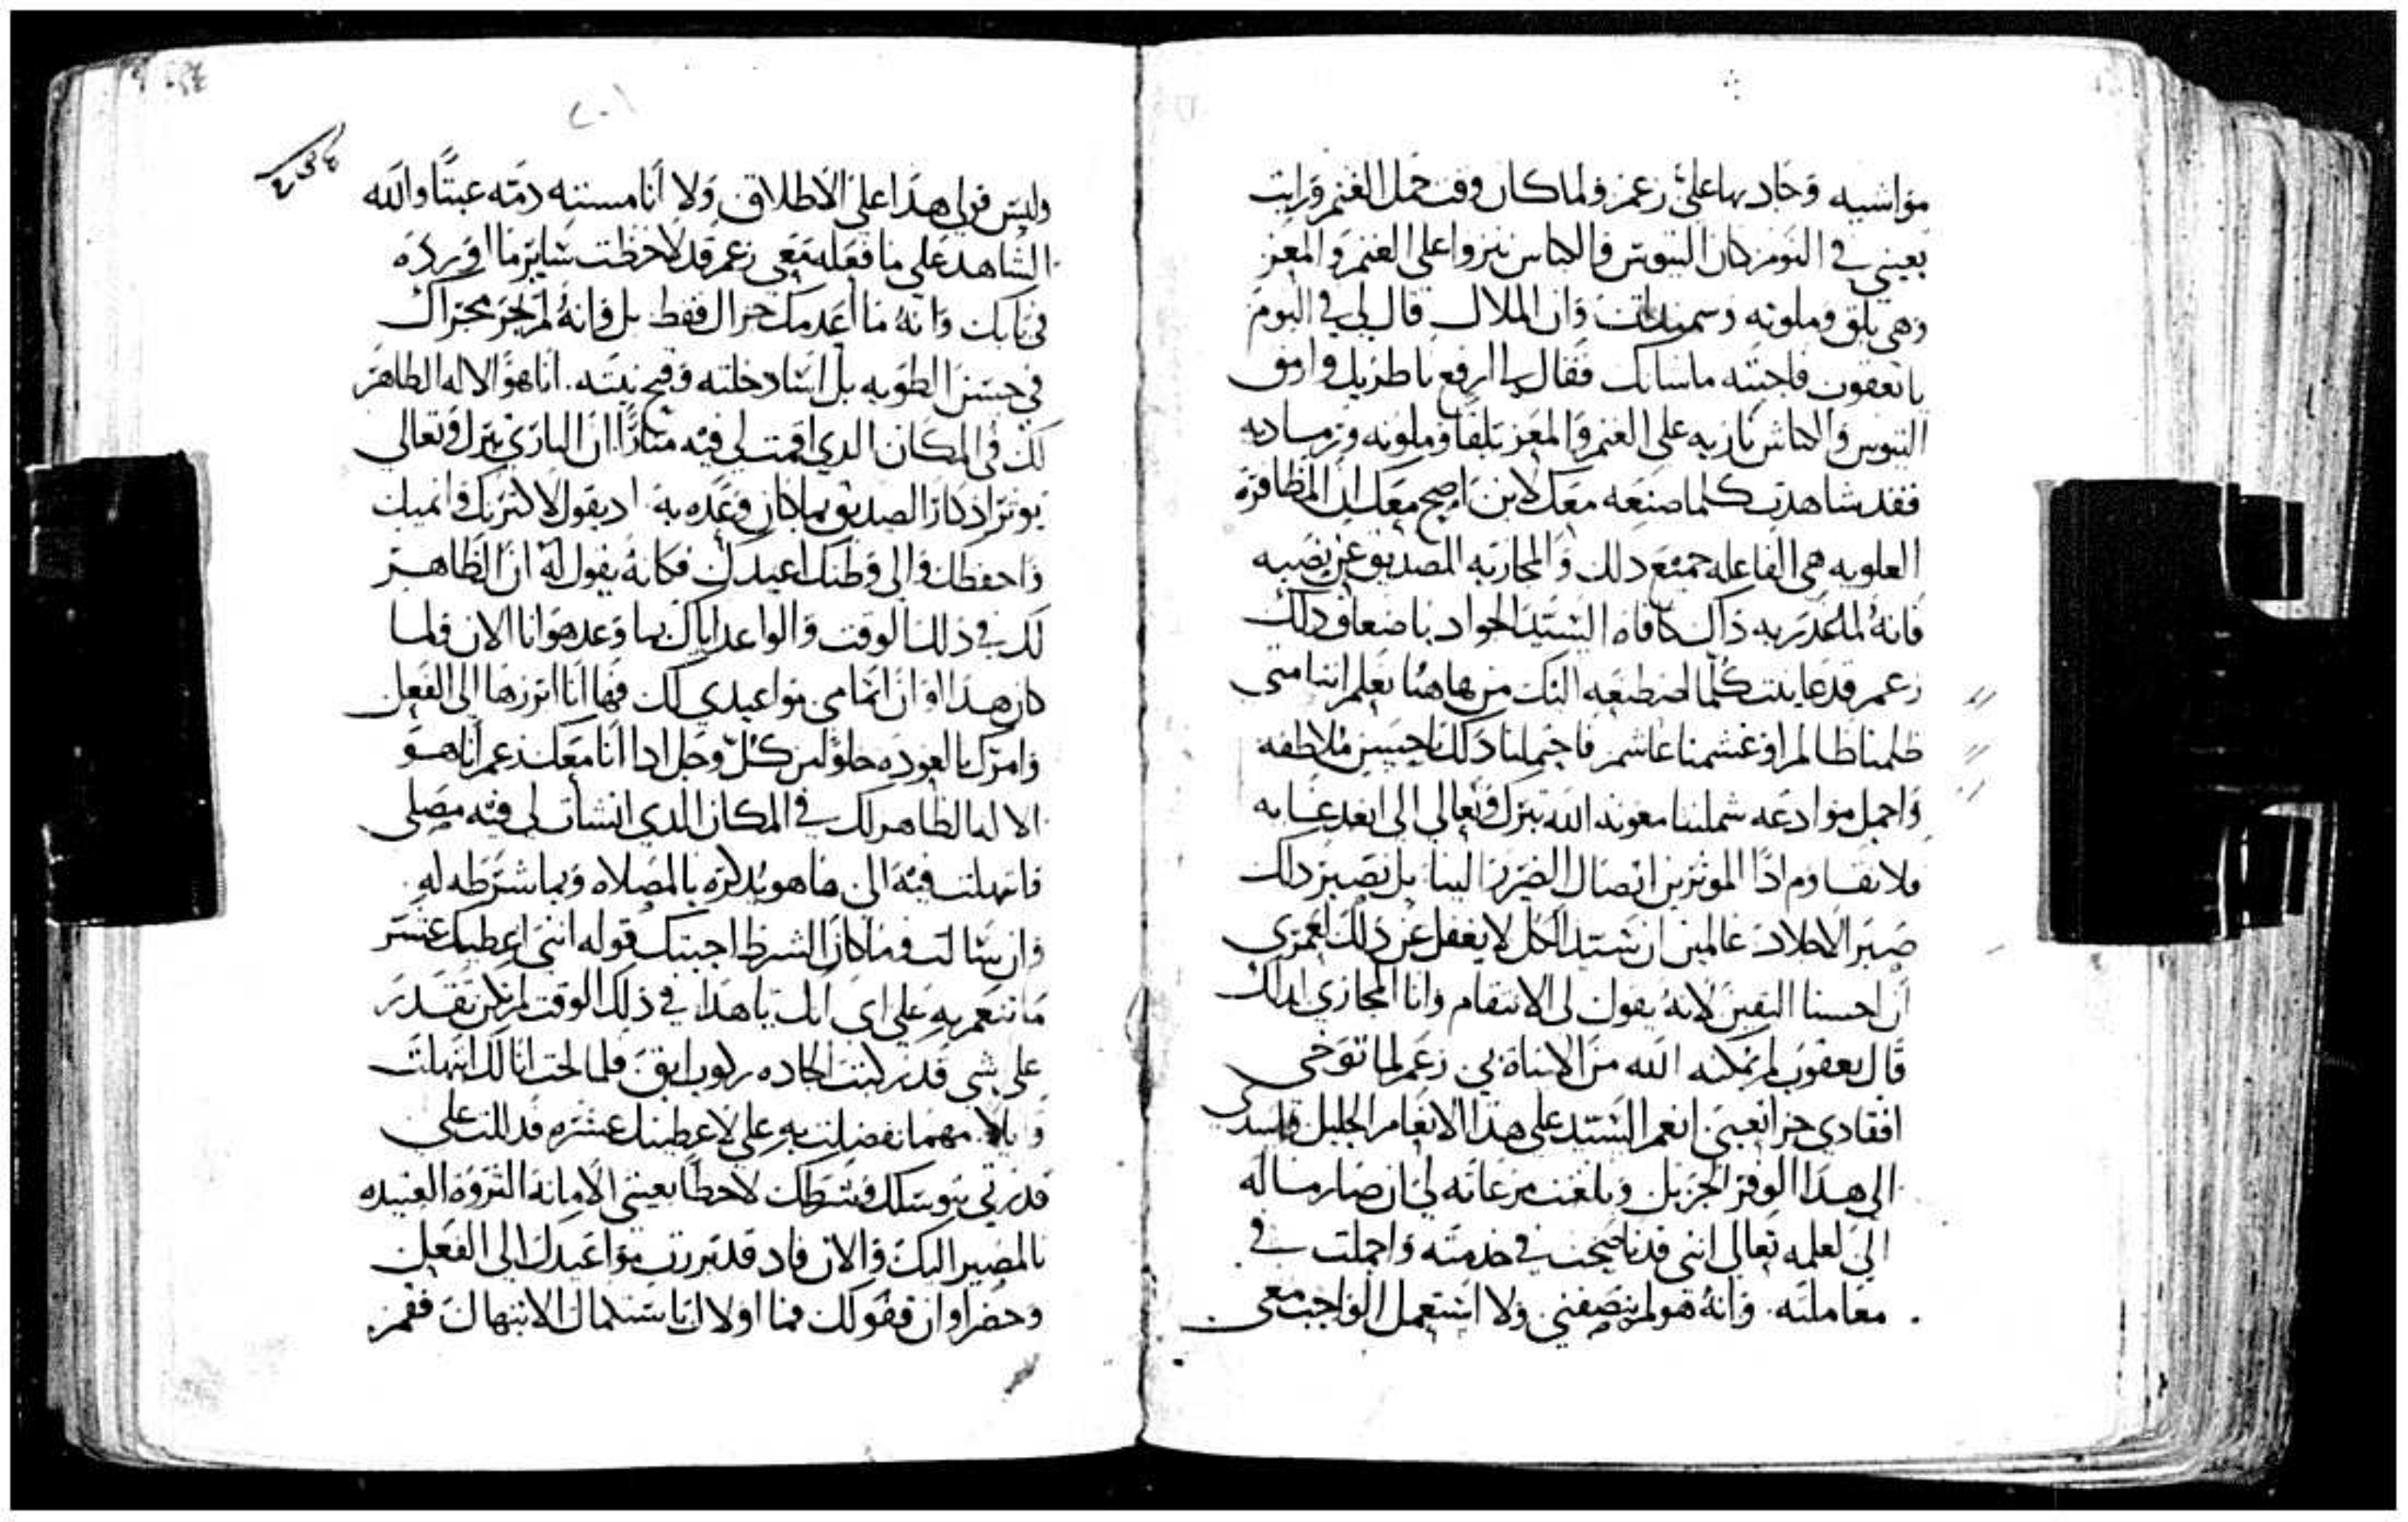 مواشيه وجاد بها علي زعم ولما كان وقت حمل الغنم ورايت
بعيني في النوم كان التيوس والكباش تنزوا علي الغنم والمعز
وهي بلق وملونه وان الملاك قال لي في النوم
يا يعقوب فاجبته ما شانك فقال لي ارفع ناظريك وارمق
التيوس والكباش نازيه علي الغنم والمعز بلقا وملونه ورماديه
فقد شاهدت كلما صنعه معك لابن اصح معك
العلويه هي الفاعله جميع ذلك والمجازيه الصديق عن نصبه
فانه لما غدر به ذاك كافاه السيد الجواد باضعاف ذلك
زعم قد عاينت كلما اصطنعه اليك من هاهنا نعلم اننا متي
ظلمنا ظالم او غشمنا غاشم فاحتملنا ذلك باحسن ملاطفه
واجمل موادعه شملتنا معونة الله تبارك وتعالي الي ابعد غايه
فلا نقاوم اذا الموثرين ايصال الضرر الينا بل نصبر ذلك
صبر الاجلاد عالمين ان سيد الكل لا يغفل عن ذلك لعمري
ان احسنا اليقين لانه يقول لي الانتقام وانا المجازي
قال يعقوب لم يمكنه الله من الاساة بي زعم لما توخي
افقادي جزا تعبي انعم السيد علي هذا الانعام الجليل
الي هذا الوفر الجزيل وبلغت مرعاته لي ان صار ماله
الي لعلمه تعالي انني قد ناصحت في خدمته واجملت في
معاملته. وانه هو لم ينصفني ولا استعمل الواجب معي
وليس قولي هذا علي الاطلاق ولا انا مستنه دمه عبثا والله
الشاهد علي ما فعله معي زعم قد لاحظت ساير ما اورده
في بابك وانه ما اعدمك جزاك فقط بل وانه لم يجز مجزاك
في حسن الطويه بل افساد دخلته وقبح نيته. انا هو الاله الظاهر
لك في المكان الذي اقمت لي فيه منارا ان الباري تبارك وتعالي
يوثر اذكار الصديق بما كان وعده به. اذ يقول لاكثرنك وانميك
واحفظك والي وطنك اعيدك فكانه يقول له ان الظاهر
لك في ذلك الوقت والواعد اياك بما وعد هو انا الان فلما
كان هذا اوان اتمامي مواعيدي لك فها انا ابرزها الي الفعل
وامرك بالعوده خلوا من كل وجل اذا انا معك زعم انا هو
الاله الظاهر لك في المكان الذي انشات لي فيه مصلي
فابتهلت فيه الي ها هو يذكره بالصلاه وبما شرطه له.
وان سالت وما كان الشرط اجبتك قوله انني اعطيك عشر
ما تنعم به علي اي انك يا هذا في ذلك الوقت لم تكن تقدر
علي شي قد ركبت الجاده ركوب ابق فلما لحت انا لك ابتهلت
وقايلا. مهما تفضلت به علي لاعطينك عشره فدللت علي
قدرتي بتوسلك وشرطك لاحظا بعيني الامانة الثروة العتيده
بالمصير اليك والان فاد قد برزت مواعيدك الي الفعل
وحضر اوان وقولك فما اولاك باستكمال الابتهال فقم